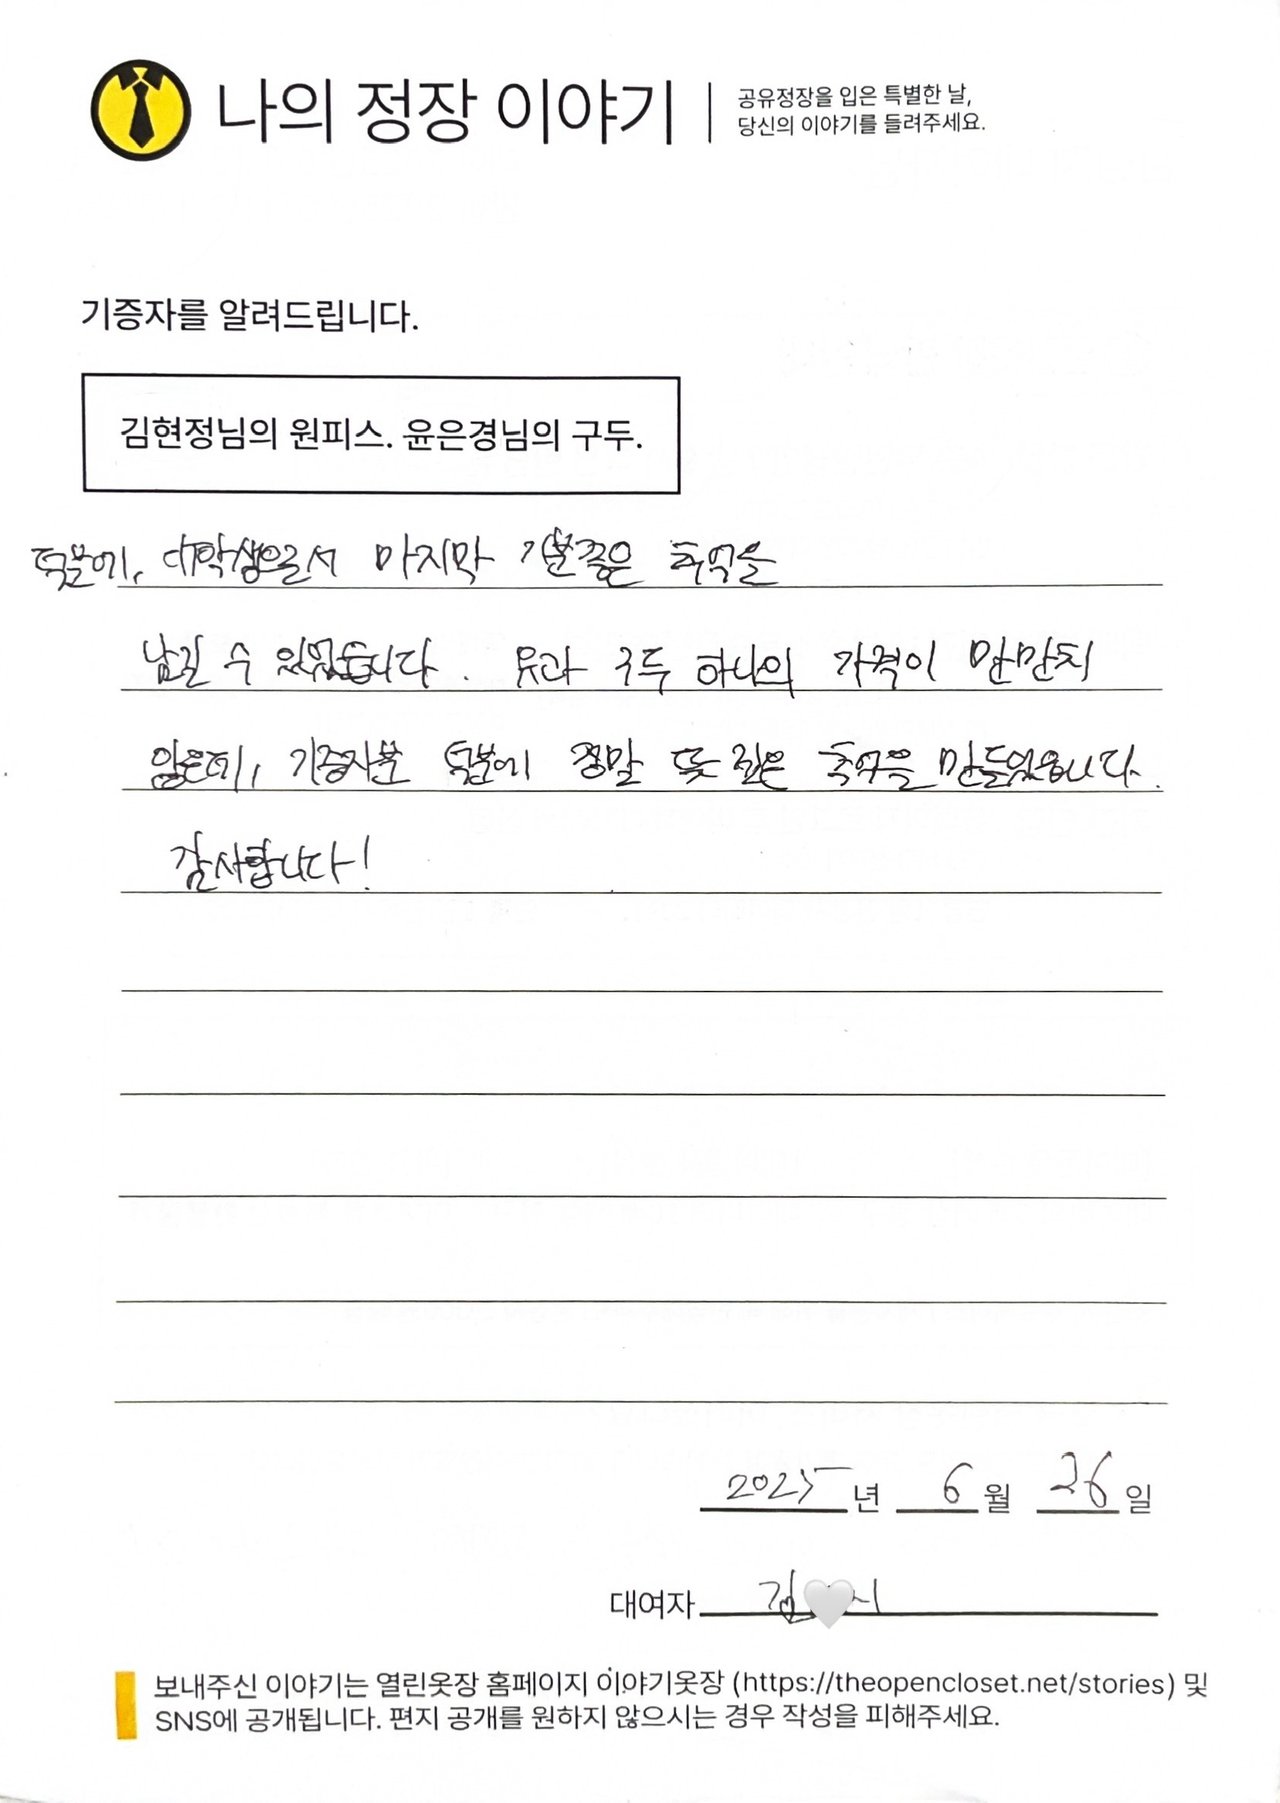 나의 정장 이야기
공유정장을 입은 특별한 날,
당신의 이야기를 들려주세요.
기증자를 알려드립니다.
김현정님의 원피스. 윤은경님의 구두.
덕분에, 대학생으로서 마지막 기분좋은 추억을
남길 수 있었습니다. 옷과 구두 하나의 가격이 만만치
않은데, 기증자분 덕분에 정말 뜻 깊은 추억을 만들었습니다.
감사합니다!
2025년 6월 26일
대여자
보내주신 이야기는 열린옷장 홈페이지 이야기옷장 (https://theopencloset.net/stories) 및
SNS에 공개됩니다. 편지 공개를 원하지 않으시는 경우 작성을 피해주세요.